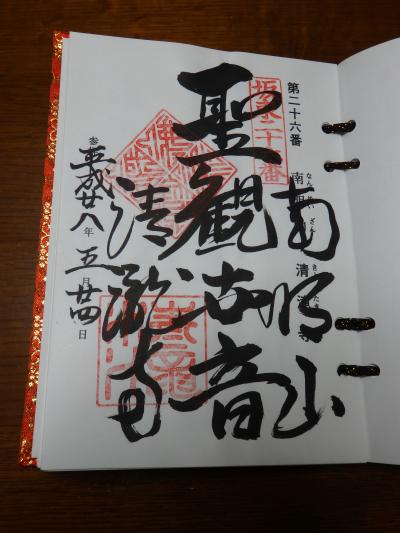 第二十六番
坂東二十六番
南明山
聖観世音
清瀧寺
参 平成廿八年五月廿四日